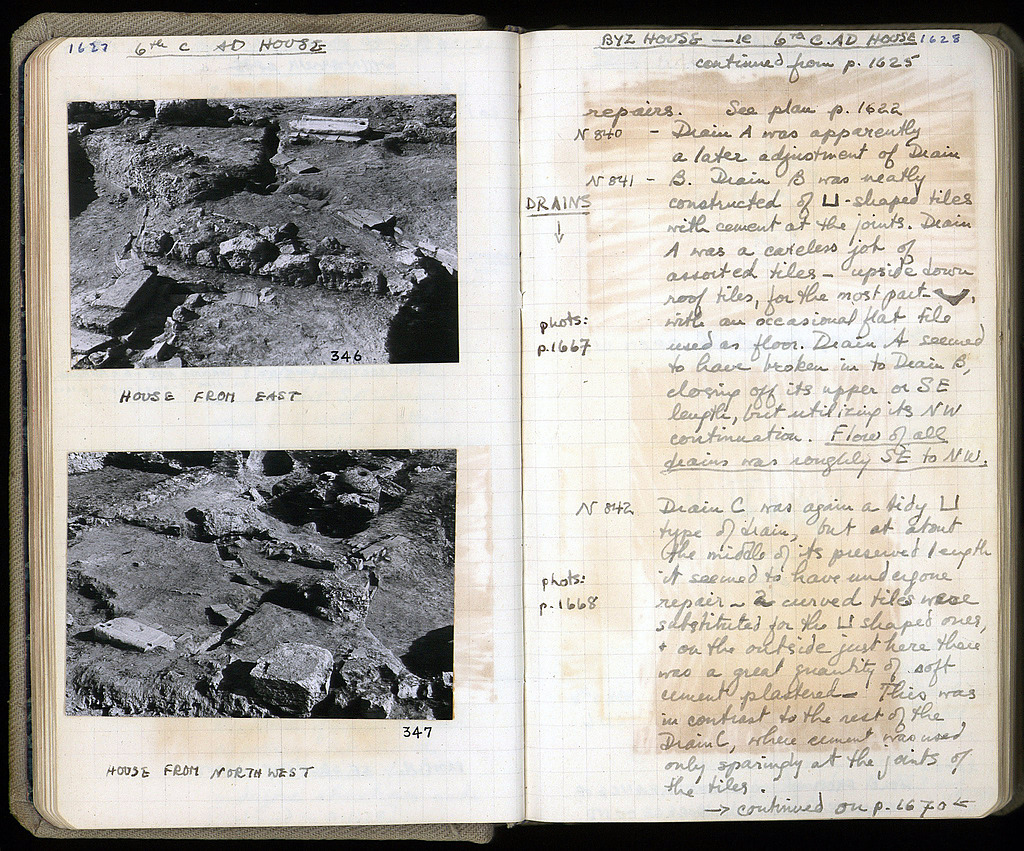 1627 6th C AD HOUSE
346
HOUSE FROM EAST
347
HOUSE FROM NORTHWEST
BYZ HOUSE — ie 6th C. AD HOUSE 1628
continued from p. 1625
repairs. See plan p. 1622
N 840 – Drain A was apparently
a later adjustment of Drain
N 841 – B. Drain B was neatly
DRAINS constructed of ⊔-shaped tiles
↓ with cement at the joints. Drain
A was a careless job of
assorted tiles – upside down
roof tiles, for the most part,
phots: with an occasional flat tile
p. 1667 used as floor. Drain A seemed
to have broken in to Drain B,
closing off its upper or SE
length, but utilizing its NW
continuation. Flow of all
drains was roughly SE to NW.
N 842 Drain C was again a tidy ⊔
type of drain, but at about
the middle of its preserved length
phots: it seemed to have undergone
p. 1668 repair – 2 curved tiles were
substituted for the ⊔ shaped ones,
+ on the outside just here there
was a great quantity of soft
cement plastered – This was
in contrast to the rest of the
Drain C, where cement was used
only sparingly at the joints of
the tiles.
→ continued on p. 1670 ←